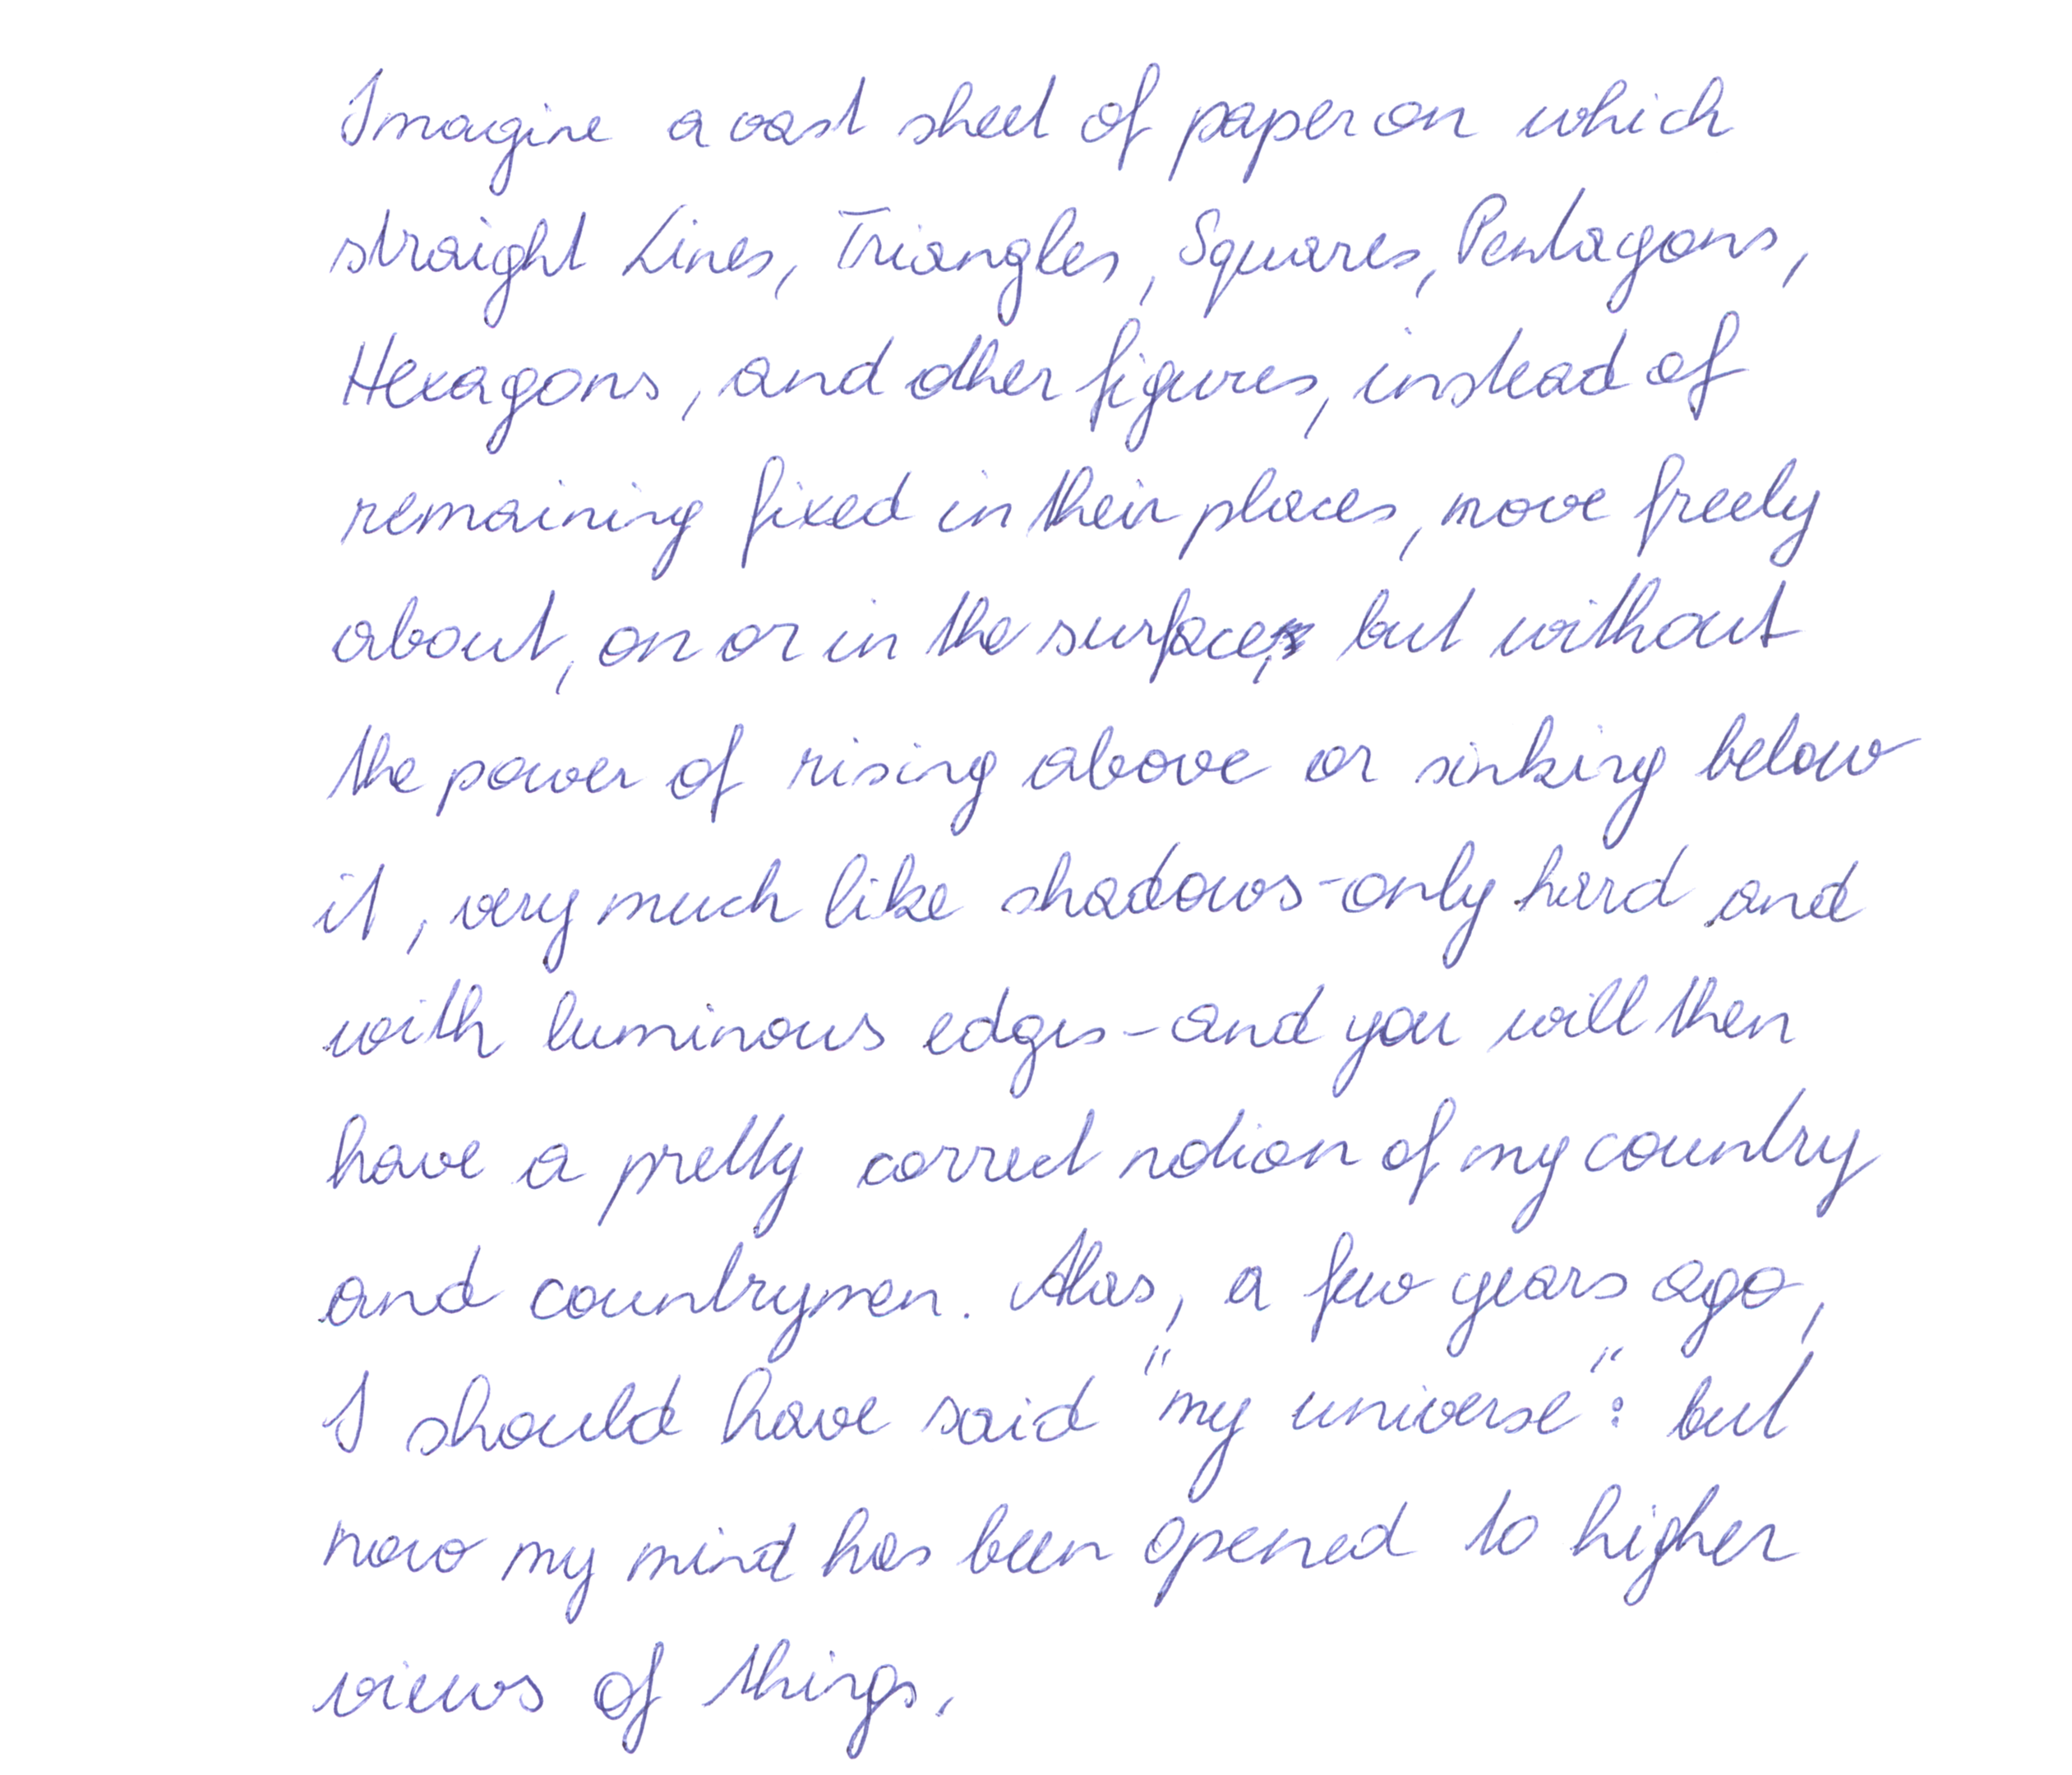 Imagine a vast sheet of paper on which
straight Lines, Triangles, Squares, Pentagons,
Hexagons, and other figures, instead of
remaining fixed in their places, move freely
about, on or in the surface, but without
the power of rising above or sinking below
it, very much like shadows-only hard and
with luminous edges-and you will then
have a pretty correct notion of my country
and countrymen. Alas, a few years ago,
I should have said "my universe": but
now my mind has been opened to higher
views of things.